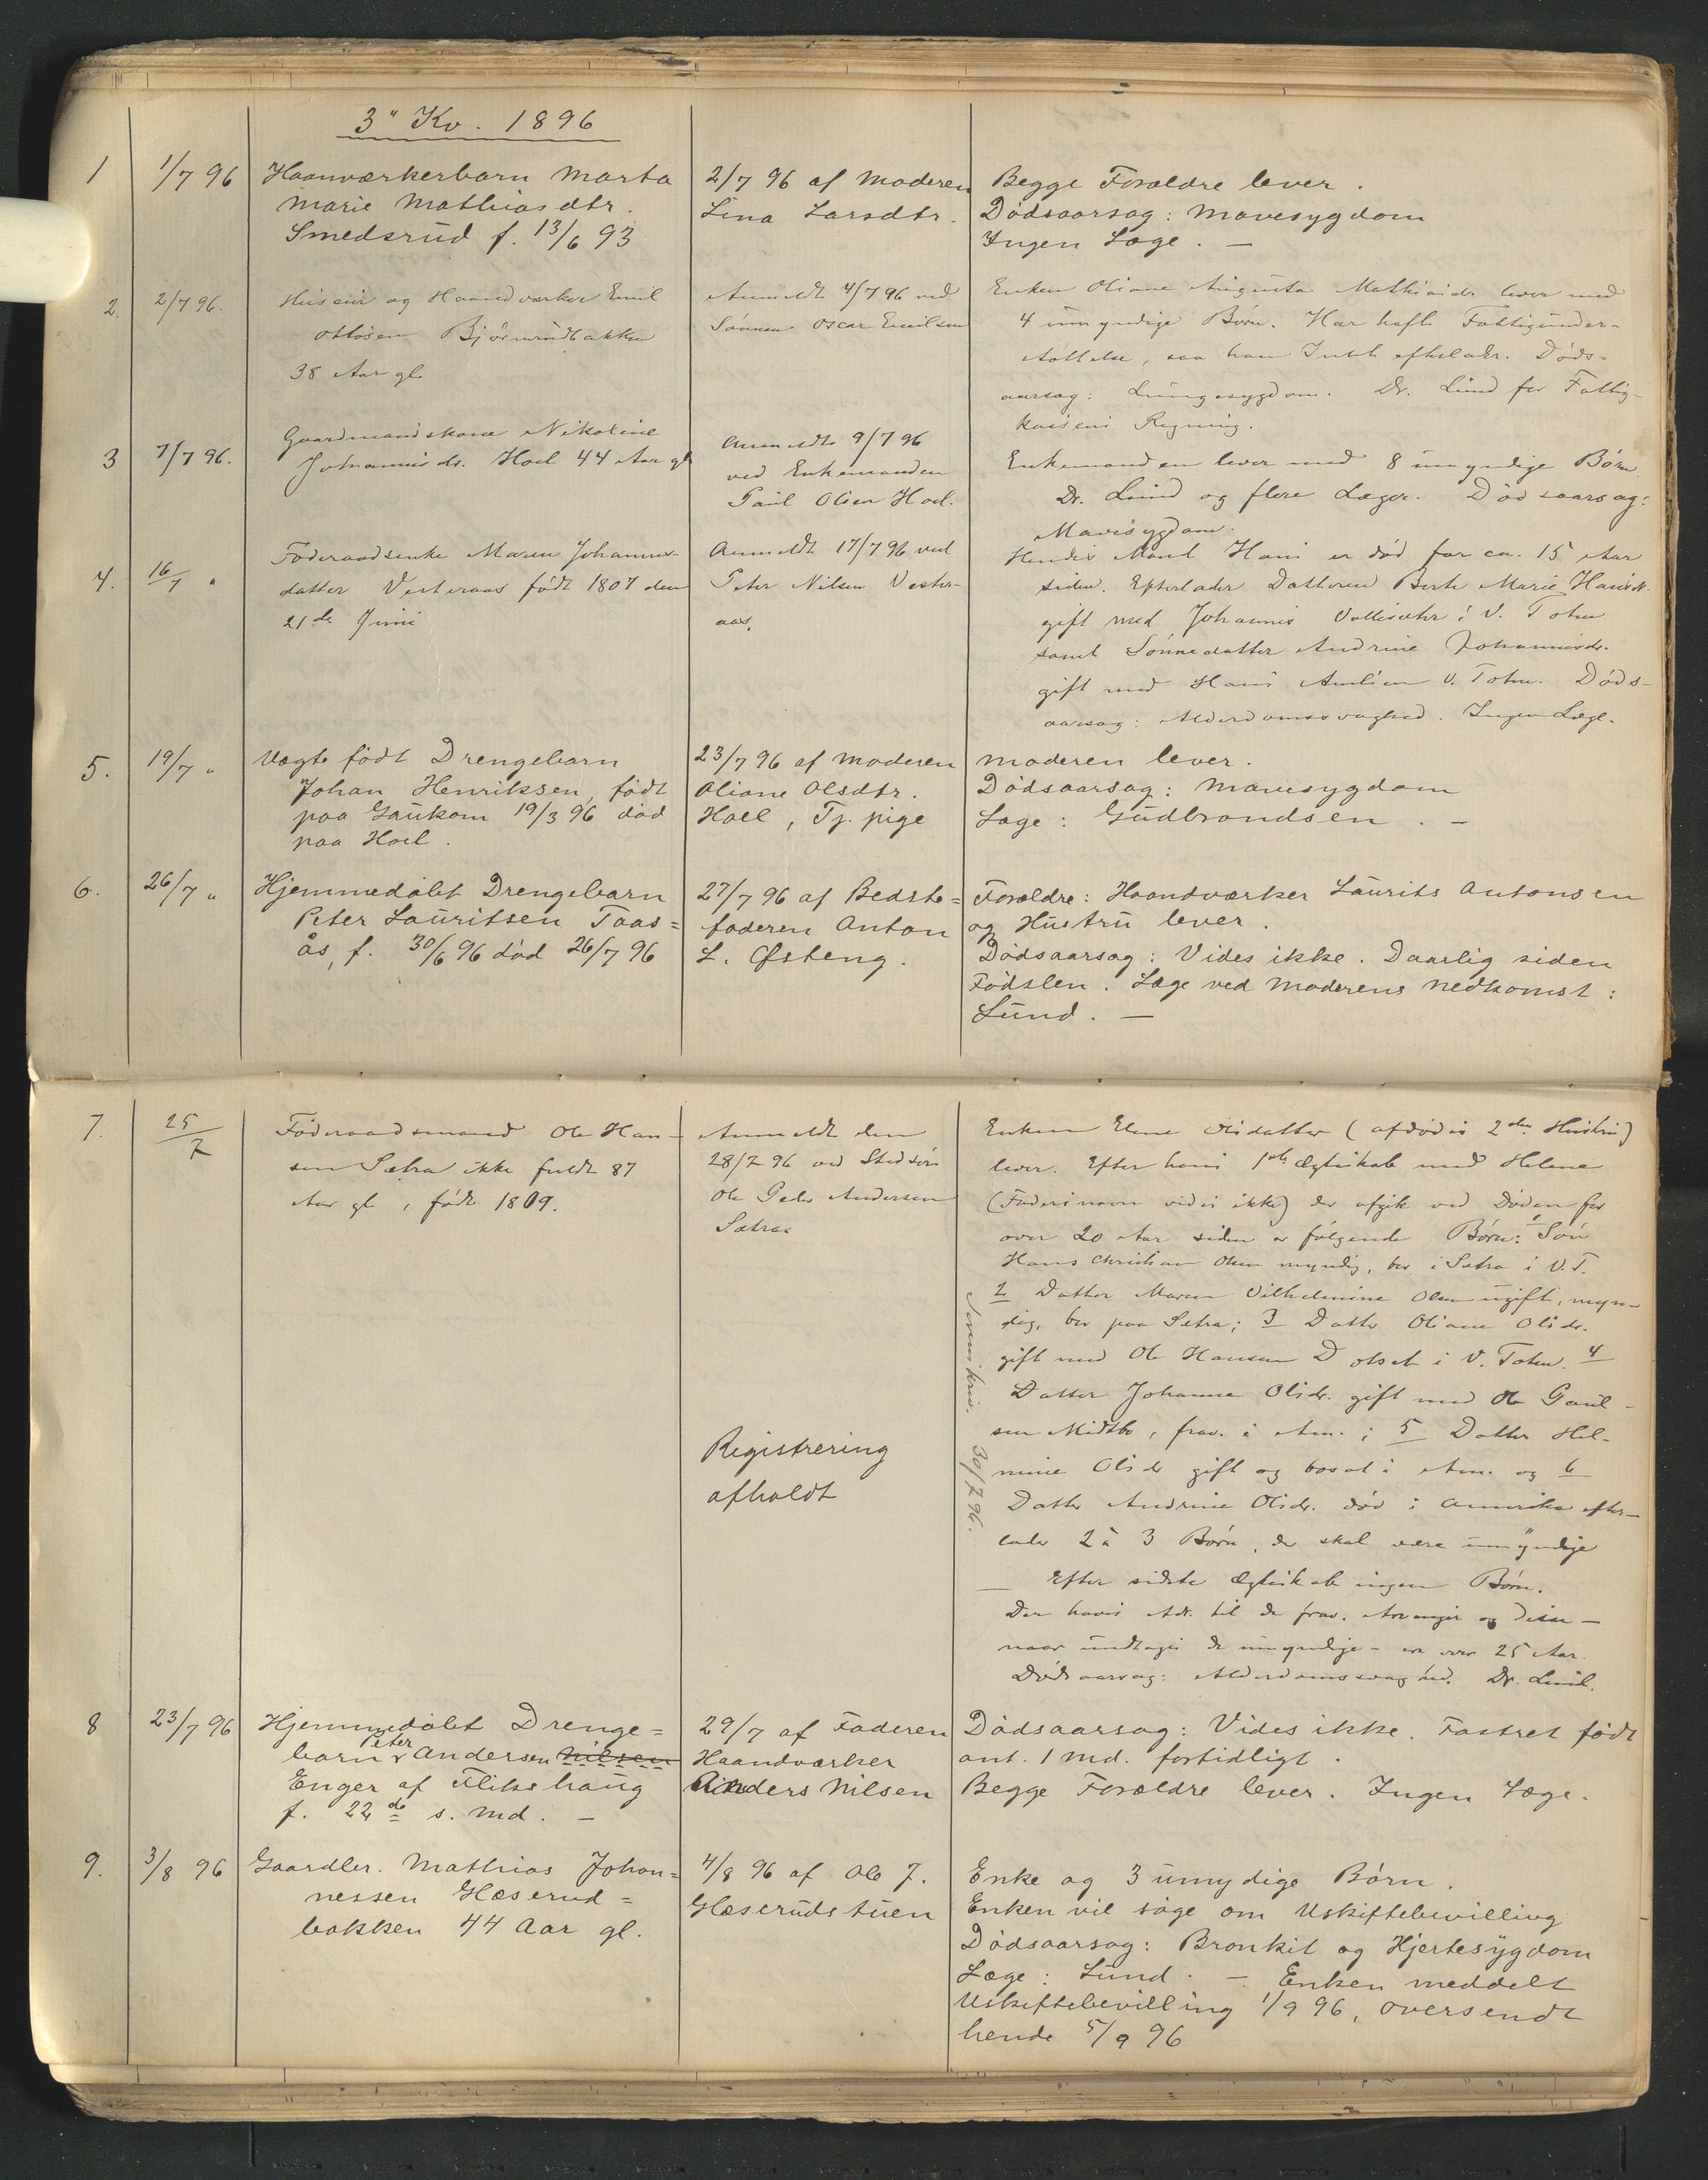 3" Kv. 1896
1
1/7 96
Haanværkerbarn Marta
Marie Mathiasdtr.
Smedsrud f. 13/6 93
2/7 96 af Moderen
Lina Larsdtr.
Begge Forældre lever.
Dødsaarsag: Mavesygdom
Ingen Læge. —
2.
2/7 96.
Huseier og Haandværker Emil
Ottosen
38 Aar gl.
Anmeldt 4/7 96 ved
Sønnen Oscar Emilsen
Enken Oliane Augusta Mathisdr. lever med
4 umyndige Børn. Har havt Fattigunder-
støttelse, saa han Intet efterlader. Døds-
aarsag: Lungesygdom. Dr. Lund for Fattig-
kassens Regning.
3
7/7 96.
Gaardmandskone Nikoline
Johannesdr. Hoel 44 Aar gl.
Anmeldt 9/7 96
ved Enkemanden
Paul Olsen Hoel.
Enkemanden lever med 8 umyndige Børn
Dr. Lund og flere Læger. Dødsaarsag:
Mavesygdom.
4.
16/7 "
Føderaadsenke Maren Johannes-
datter Vesteraas født 1807 den
21de Juni
Anmeldt 17/7 96 ved
Peter Nilsen Vester-
aas.
Hendes Mand Hans er død for ca. 15 Aar
siden. Efterlader Datteren Berte Marie Hansdr.
gift med Johannes i V. Toten
samt Sønnedatter Andrine Johannesdr.
gift med Hans V. Toten. Døds-
aarsag: Alderdomssvaghed. Ingen Læge.
5.
19/7 "
Uægte født Drengebarn
Johan Henriksen, født
paa Gaukom 19/3 96 død
paa Hoel.
23/7 96 af Moderen
Oliane Olsdtr.
Hoel, Tj. pige
Moderen lever.
Dødsaarsag: Mavesygdom
Læge: Gudbrandsen. —
6.
26/7 "
Hjemmedøbt Drengebarn
Peter Lauritsen Taas=
ås, f. 30/6 96 død 26/7 96
27/7 96 af Bedste=
faderen Anton
L. Østeng.
Forældre: Haandværker Laurits Antonsen
og Hustru lever.
Dødsaarsag: Vides ikke. Daarlig siden
Fødslen. Læge ved Moderens Nedkomst:
Lund. —
7.
25/7
Føderaadsmand Ole Han-
sen Sætra ikke fuldt 87
Aar gl, født 1809.
Anmeldt den
28/7 96 ved Stedsøn
Ole Peder Andersen
Sætra
Registrering
afholdt
Enken Elene Olsdatter (afdødes 2den Hustru)
lever. Efter hans 1ste Ægteskab med Helene
(Fadersnavn vides ikke) der afgik ved Døden for
over 20 Aar siden er følgende Børn: 1 Søn
Hans Christian Olsen myndig, bor i Sætra i V.T.
2 Datter Maren Vilhelmine Olsen ugift, myn-
dig, bor paa Setra; 3 Datter Oliane Olsdr.
gift med Ole Hansen Dotset i V. Toten. 4
Datter Johanne Olsdr. gift med Ole Paul-
sen Midtbø, frav. i Am.; 5 Datter Hel-
mine Olsdr gift og bosat i Am. og 6
Datter Andrine Olsdr. død i Amerika efter-
lader 2 à 3 Børn, der skal være umyndige
— Efter sidste Ægteskab ingen Børn.
Der haves Adr. til de frav. Arvinger og Disse —
naar undtages de umyndige - er over 25 Aar.
Dødsaarsag: Alderdomssvaghed. Dr. Lund.
30/7 96.
8
23/7 96
Hjemmedøbt Drenge=
barn Peter Andersen Nilsen
Enger af Flikshaug
f. 22de s. Md. —
29/7 af Faderen
Haandværker
Anders Nilsen
Dødsaarsag: Vides ikke. Fostret født
ant. 1 Md. fortidligt.
Begge Forældre lever. Ingen Læge.
9.
3/8 96
Gaardbr. Mathias Johan=
nessen Glæserud=
bakken 44 Aar gl.
4/8 96 af Ole J.
Glæserudstuen
Enke og 3 umydige Børn.
Enken vil søge om Uskiftebevilling
Dødsaarsag: Bronkit og Hjertesygdom
Læge: Lund. — Enken meddelt
Uskiftebevilling 1/9 96, oversendt
hende 5/9 96